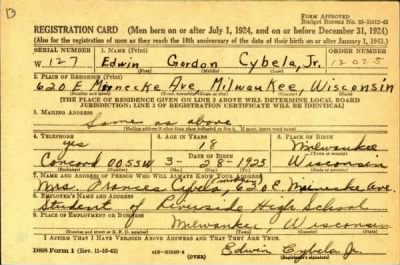 B
FORM APPROVED
Budget Bureau No. 33-R012-42
REGISTRATION CARD (Men born on or after July 1, 1924, and on or before December 31, 1924)
(Also for the registration of men as they reach the 18th anniversary of the date of their birth on or after January 1, 1943.)
SERIAL NUMBER 1. NAME (Print) ORDER NUMBER
W 127 Edwin Gordon Cybela, Jr. 12025
(First) (Middle) (Last)
2. PLACE OF RESIDENCE (Print)
620 E Meinecke Ave, Milwaukee, Wisconsin
[THE PLACE OF RESIDENCE GIVEN ON LINE 2 ABOVE WILL DETERMINE LOCAL BOARD
JURISDICTION; LINE 2 OF REGISTRATION CERTIFICATE WILL BE IDENTICAL]
3. MAILING ADDRESS
Same as above
4. TELEPHONE 5. AGE IN YEARS 6. PLACE OF BIRTH
yes 18 Milwaukee
DATE OF BIRTH
Concord 0055W 3-28-1925 Wisconsin
7. NAME AND ADDRESS OF PERSON WHO WILL ALWAYS KNOW YOUR ADDRESS
Mrs. Frances Cybela, 620 E. Meineske Ave.
8. EMPLOYER'S NAME AND ADDRESS
Student of Riverside High School
9. PLACE OF EMPLOYMENT OR BUSINESS
Milwaukee, Wisconsin
I AFFIRM THAT I HAVE VERIFIED ABOVE ANSWERS AND THAT THEY ARE TRUE.
DSS Form 1 (Rev. 11-16-42) (OVER) Edwin Cybela Jr.